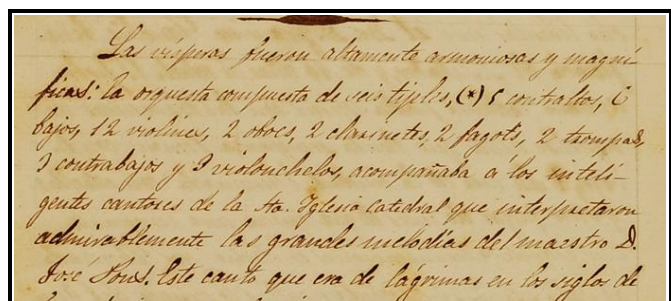 Las vísperas fueron altamente armoniosas y magní-
ficas: la orquesta compuesta de seis tiples, (*) 5 contraltos, 6
bajos, 12 violines, 2 oboes, 2 clarinetes, 2 fagots, 2 trompas,
3 contrabajos y 3 violonchelos, acompañaba á los inteli-
gentes cantores de la Sta. Yglesia catedral que interpretaron
admirablemente las grandes melodías del maestro D.
José Pons. Este canto que era de lágrimas en los siglos de